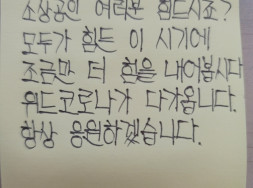 소상공인 여러분 힘드시죠?
모두가 힘든 이 시기에
조금만 더 힘을 내어봅시다
위드코로나가 다가옵니다.
항상 응원하겠습니다.